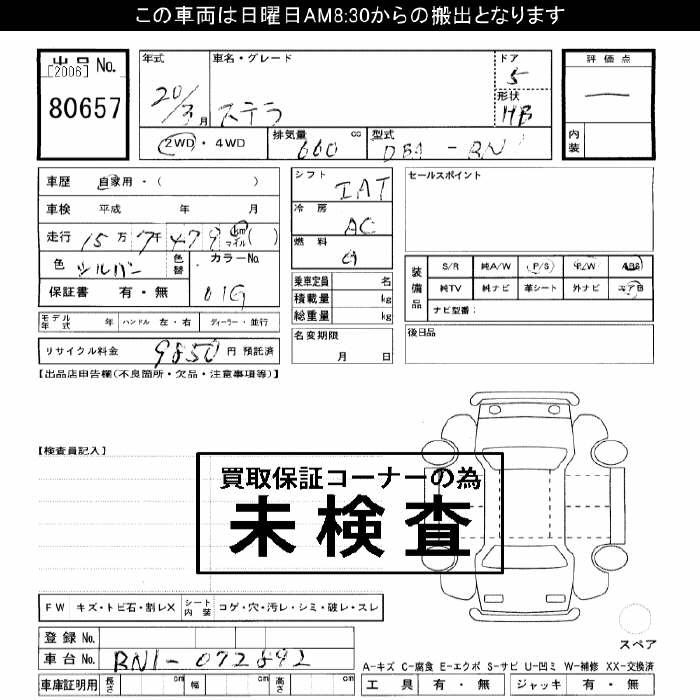 この車両は日曜日AM8:30からの搬出となります
出品 No.
[2006]
80657
年式
20/3月
車名・グレード
ステラ
ドア
5
形状
HB
2WD・4WD
排気量
660 cc
型式
DBA - RN1
評価点
一
内装
車歴 自家用・( )
車検 平成 年 月
走行 15万7千479 km マイル ( )
色 シルバー
色替
カラーNo.
01G
保証書 有・無
モデル年式 年 ハンドル 左・右 ディーラー・並行
リサイクル料金 9850 円 預託済
シフト
IAT
冷房
AC
燃料
G
乗車定員 名
積載量 kg
総重量 kg
名変期限
月 日
セールスポイント
装備品
S/R 純A/W P/S P/W ABS
純TV 純ナビ 革シート 外ナビ エアB
ナビ型番:
後日品
【出品店申告欄(不良箇所・欠品・注意事項等)】
【検査員記入】
買取保証コーナーの為
未検査
FW キズ・トビ石・割レX シート内装 コゲ・穴・汚レ・シミ・破レ・スレ
登録 No.
車台 No. RN1-072892
車庫証明用 長さ cm 幅 cm 高さ cm
スペア
A-キズ C-腐食 E-エクボ S-サビ U-凹ミ W-補修 XX-交換済
工具 有・無 ジャッキ 有・無